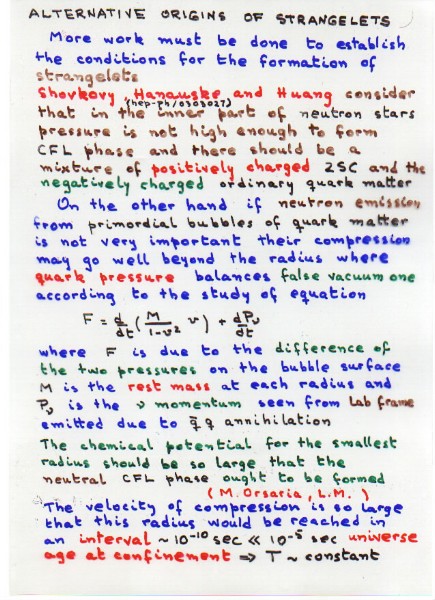 ALTERNATIVE ORIGINS OF STRANGELETS
More work must be done to establish
the conditions for the formation of
strangelets
Shovkovy, Hanauske and Huang consider
(hep-ph/0303027)
that in the inner part of neutron stars
pressure is not high enough to form
CFL phase and there should be a
mixture of positively charged 2SC and the
negatively charged ordinary quark matter
On the other hand if neutron emission
from primordial bubbles of quark matter
is not very important their compression
may go well beyond the radius where
quark pressure balances false vacuum one
according to the study of equation
F = d/dt (M/1-v² v) + dPν/dt
where F is due to the difference of
the two pressures on the bubble surface
M is the rest mass at each radius and
Pν is the ν momentum seen from lab frame
emitted due to q̄ q annihilation
The chemical potential for the smallest
radius should be so large that the
neutral CFL phase ought to be formed
(M. Orsaria, L.M.)
The velocity of compression is so large
that this radius would be reached in
an interval ~ 10⁻¹⁰ sec ≪ 10⁻⁵ sec universe
age at confinement ⇒ T ~ constant